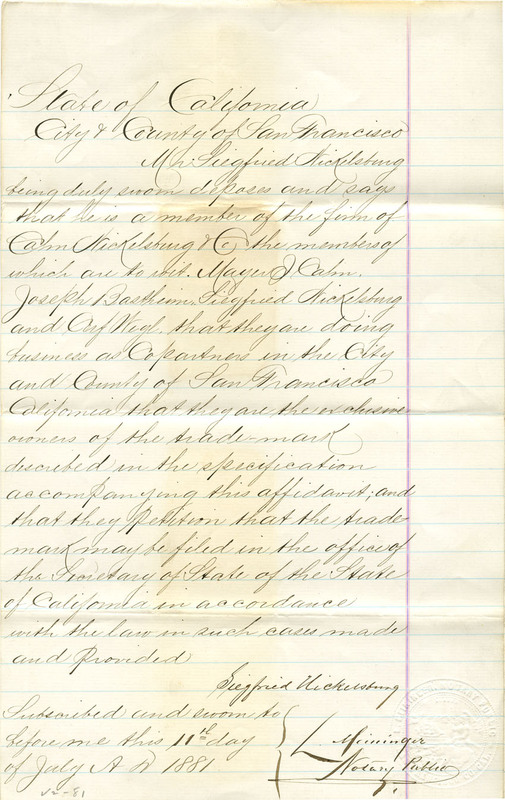 State of California
City & County of San Francisco
Mr. Siegfried Nickelsburg
being duly sworn deposes and says
that he is a member of the firm of
Cahn Nickelsburg & Co, the members of
which are to wit. Mayer J. Cahn.
Joseph Bastheim. Siegfried Nickelsburg
and Wogl. that they are doing
business as Copartners in the City
and County of San Francisco
California that they are the exclusive
owners of the trade-mark
described in the specification
accompanying this affidavit; and
that they petition that the trade
mark may be filed in the office of
the Secretary of State of the State
of California in accordance
with the law in such cases made
and Provided
Siegfried Nickelsburg
Subscribed and sworn to
before me this 11th day
of July A D 1881
L Meininger
Notary Public